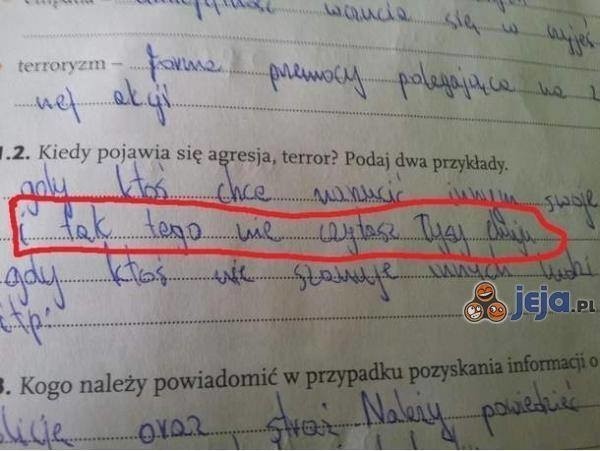 wczucia się w czyjeś
terroryzm – forma przemocy polegająca na
nej akcji
1.2. Kiedy pojawia się agresja, terror? Podaj dwa przykłady.
gdy ktoś chce narzucić innym swoje
i tak tego nie czytasz Łysy chuju
gdy ktoś nie szanuje innych ludzi
itp.
jeja.PL
3. Kogo należy powiadomić w przypadku pozyskania informacji o
licję oraz straż Należy powiedzieć